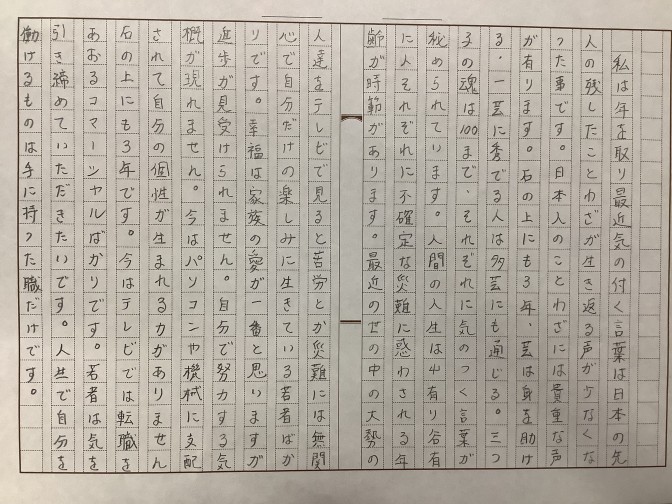 私は年を取り最近気の付く言葉は日本の先
人の残したことわざが生き返る声が少なくな
った事です。日本人のことわざには貴重な声
が有ります。石の上にも3年、芸は身を助け
る、一芸に秀でる人は多芸にも通じる。三つ
子の魂は100まで、それぞれに気のつく言葉が
秘められています。人間の人生は山有り谷有
に人それぞれに不確定な災難に惑わされる年
齢が時節があります。最近のせの中の大勢の
人達をテレビで見ると苦労とか災難には無関
心で自分だけの楽しみに生きている若者ばか
りです。幸福は家族の愛が一番と思いますが
進歩が見受けられません。自分で努力する気
概が現れません。今はパソコンや機械に支配
されて自分の個性が生まれる力がありません
石の上にも3年です。今はテレビでは転職を
あおるコマーシャルばかりです。若者は気を
引き締めていただきたいです。人生で自分を
働けるものは手に持った職だけです。